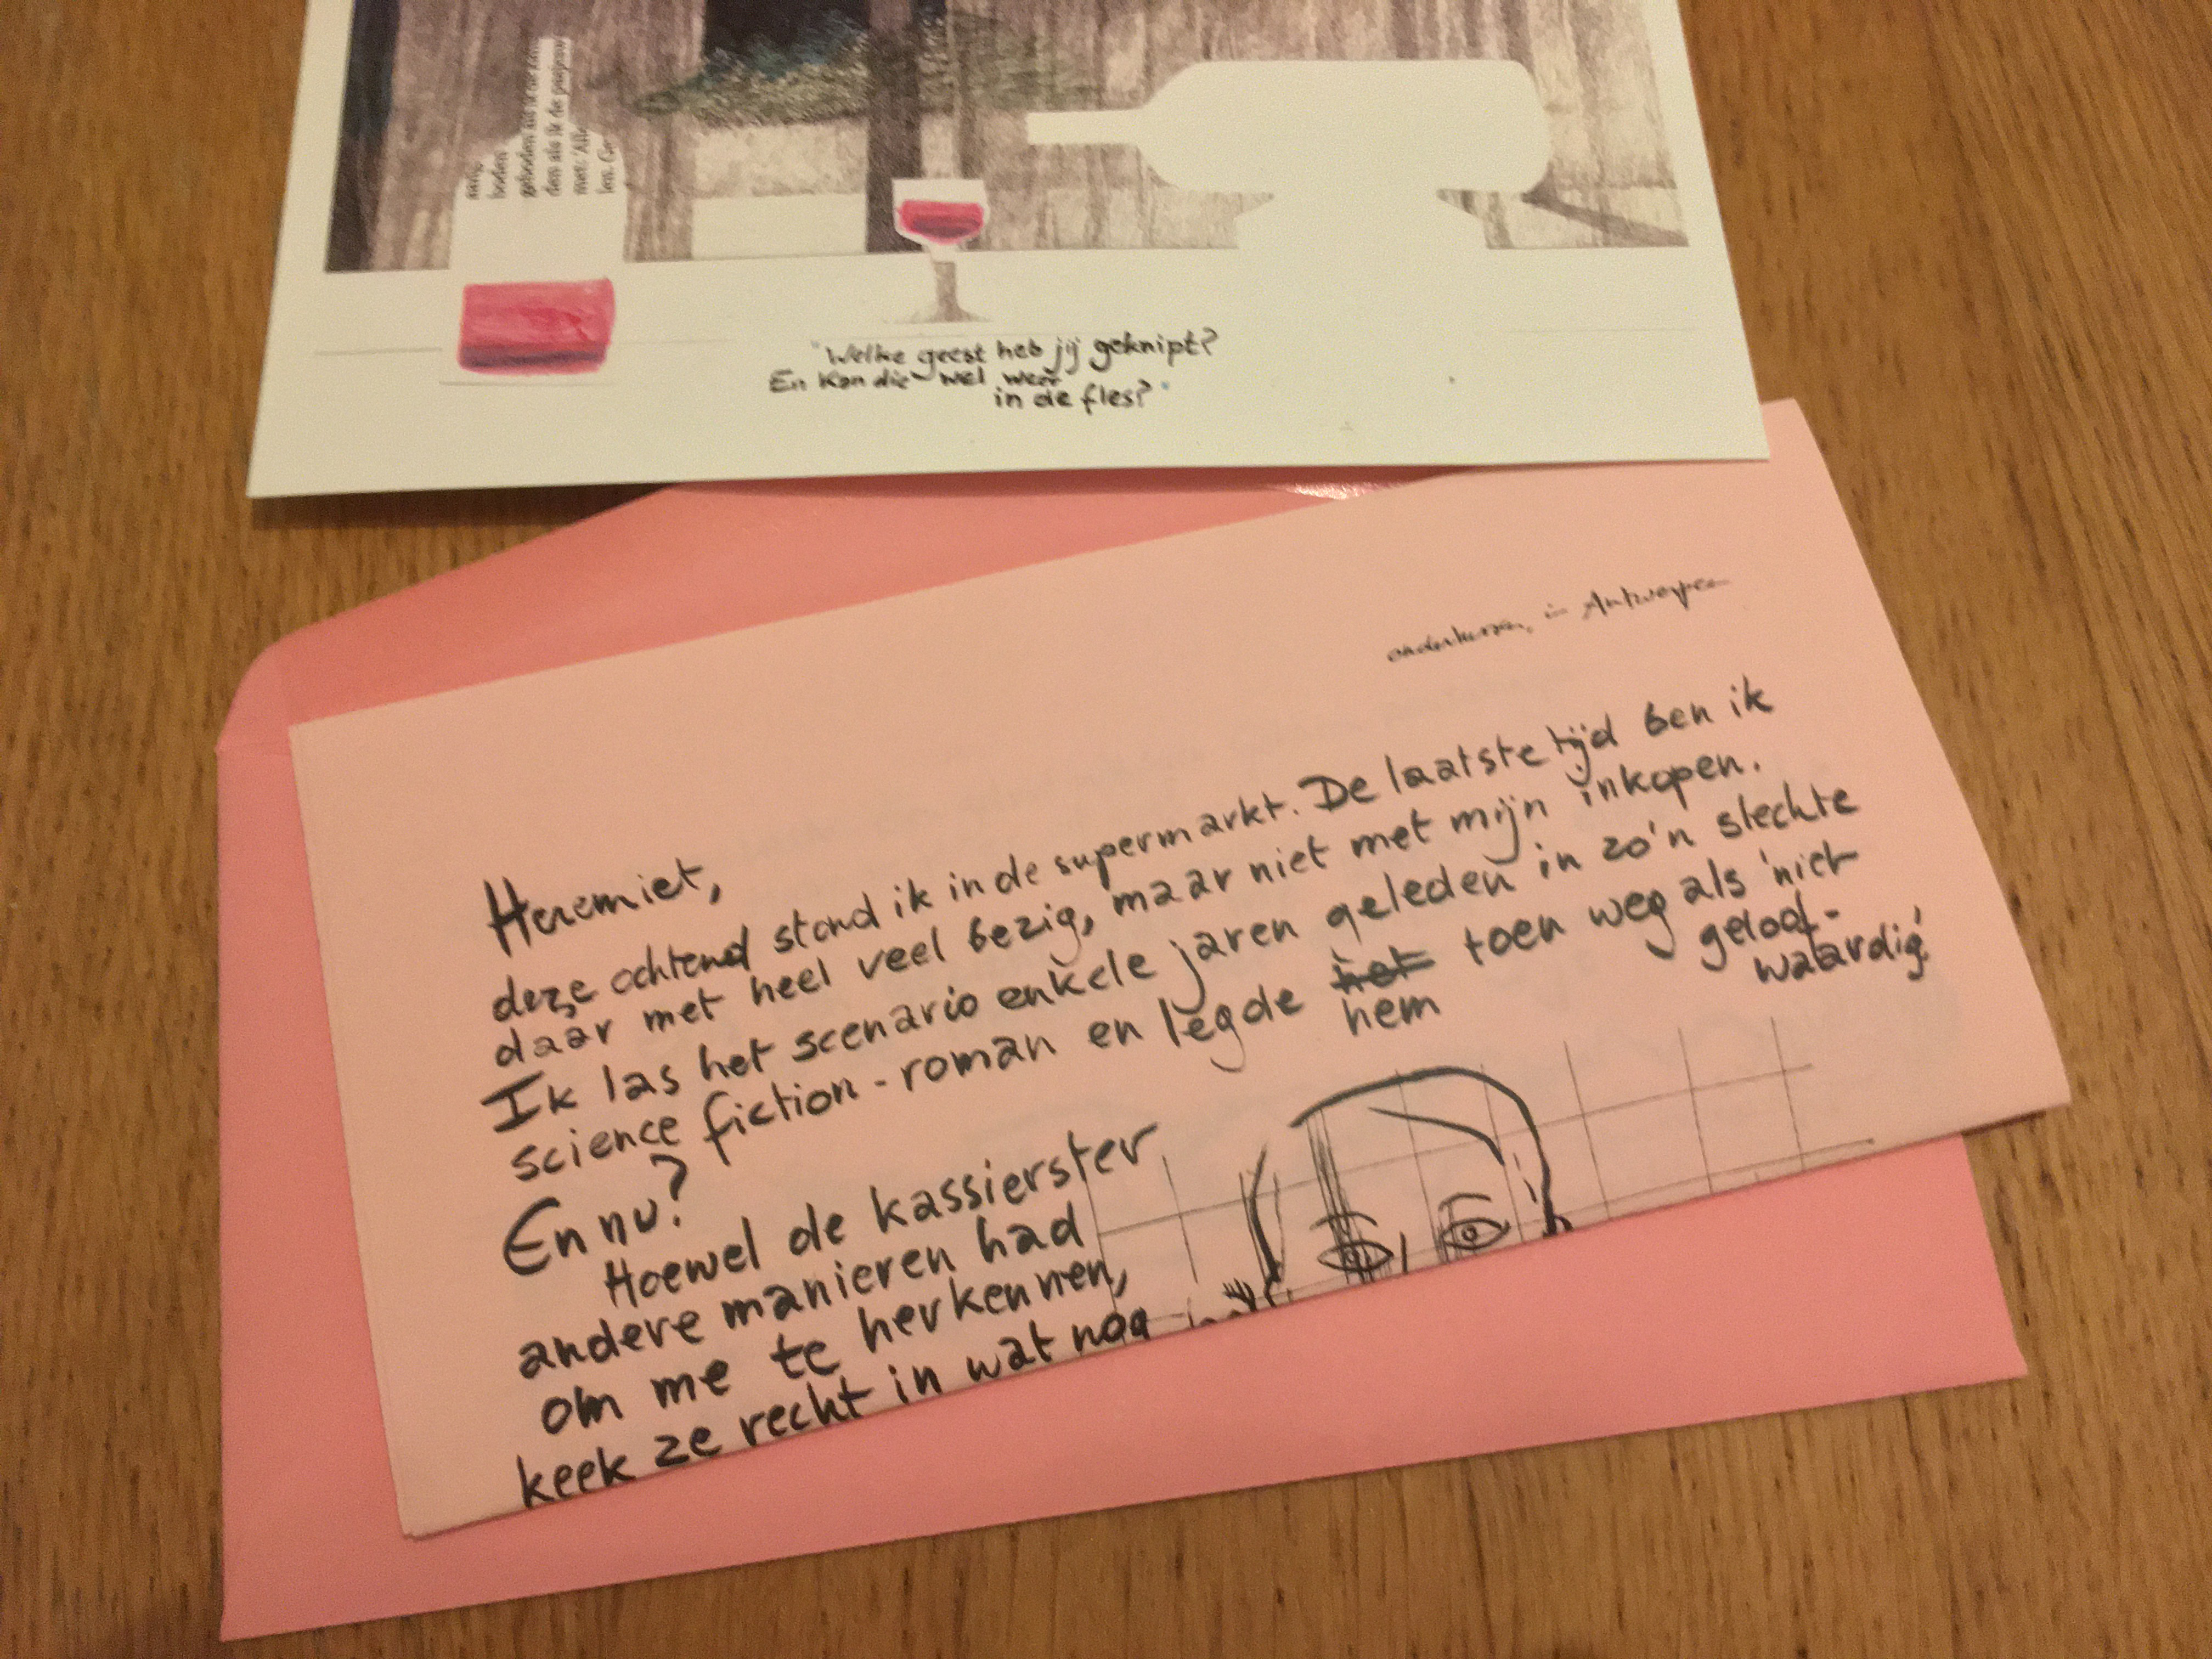 boden
geboden
den als ik de
met: 'Alle
len.
"Welke geest heb jij geknipt?
En kon die wel weer
in de fles?"
in Antwerpen
Heremiet,
deze ochtend stond ik in de supermarkt. De laatste tijd ben ik
daar met heel veel bezig, maar niet met mijn inkopen.
Ik las het scenario enkele jaren geleden in zo'n slechte
science fiction-roman en legde het hem toen weg als 'niet
geloof-
waardig.'
En nu?
Hoewel de kassierster
andere manieren had
om me te herkennen,
keek ze recht in wat nog